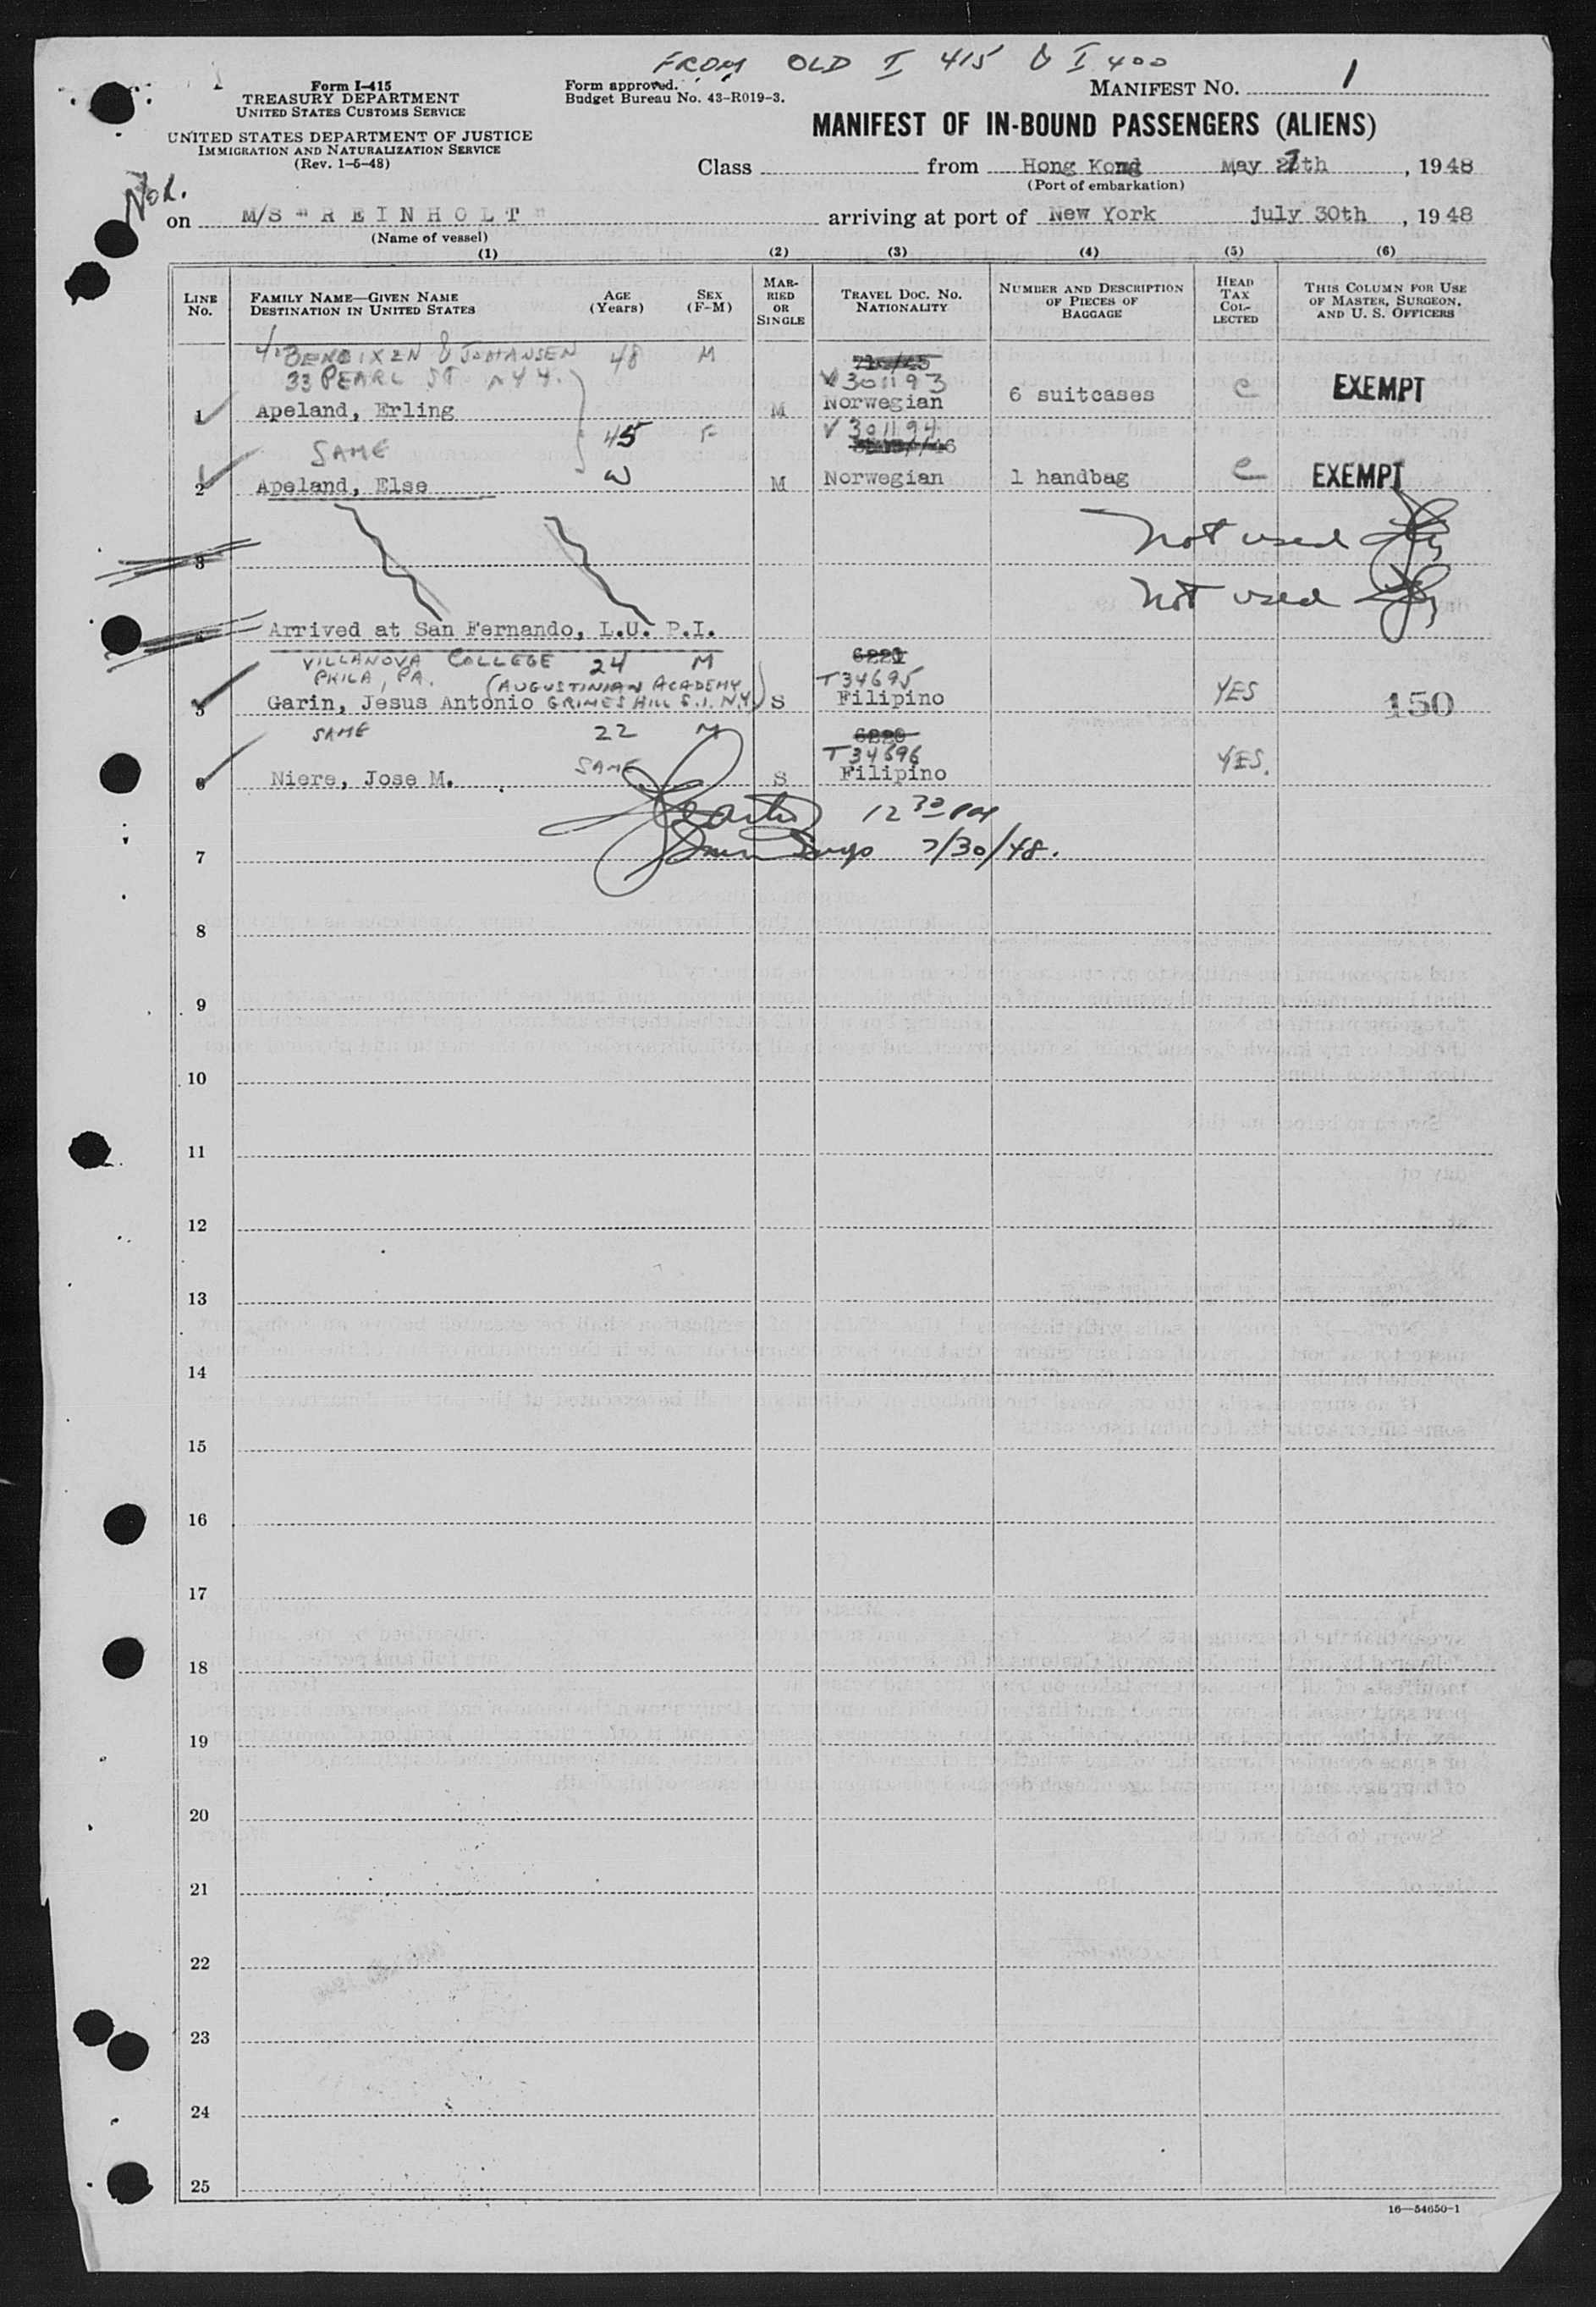 FROM OLD I 415 & I 400
Form I-415
TREASURY DEPARTMENT
UNITED STATES CUSTOMS SERVICE
UNITED STATES DEPARTMENT OF JUSTICE
IMMIGRATION AND NATURALIZATION SERVICE
(Rev. 1-5-48)
Form approved.
Budget Bureau No. 43-R019-3.
MANIFEST NO. 1
MANIFEST OF IN-BOUND PASSENGERS (ALIENS)
Class from Hong Kong May 27th, 1948
(Port of embarkation)
Nor.
on M/S "REINHOLT" arriving at port of New York july 30th, 1948
(Name of vessel)
(1) (2) (3) (4) (5) (6)
LINE NO.
FAMILY NAME—GIVEN NAME
DESTINATION IN UNITED STATES
AGE (YEARS)
SEX (F-M)
MARRIED OR SINGLE
TRAVEL DOC. NO. NATIONALITY
NUMBER AND DESCRIPTION OF PIECES OF BAGGAGE
HEAD TAX COLLECTED
THIS COLUMN FOR USE OF MASTER, SURGEON, AND U. S. OFFICERS
BENDIXEN & JOHANSEN 48 M
33 PEARL ST N Y Y. V 301193
1 Apeland, Erling M Norwegian 6 suitcases e EXEMPT
SAME 45 F V 301194
W
2 Apeland, Else M Norwegian 1 handbag e EXEMPT
3 Not used
4 Not used
Arrived at San Fernando, L.U. P.I.
VILLANOVA COLLEGE 24 M 6221
PHILA, PA. (AUGUSTINIAN ACADEMY T 34695
5 Garin, Jesus Antonio GRIMES HILL S.I. N.Y.) S Filipino YES 150
SAME 22 M 6220
SAME T 34696
6 Niere, Jose M. S Filipino YES.
12 30 PM
7 7/30/48.
8
9
10
11
12
13
14
15
16
17
18
19
20
21
22
23
24
25
16—54650-1